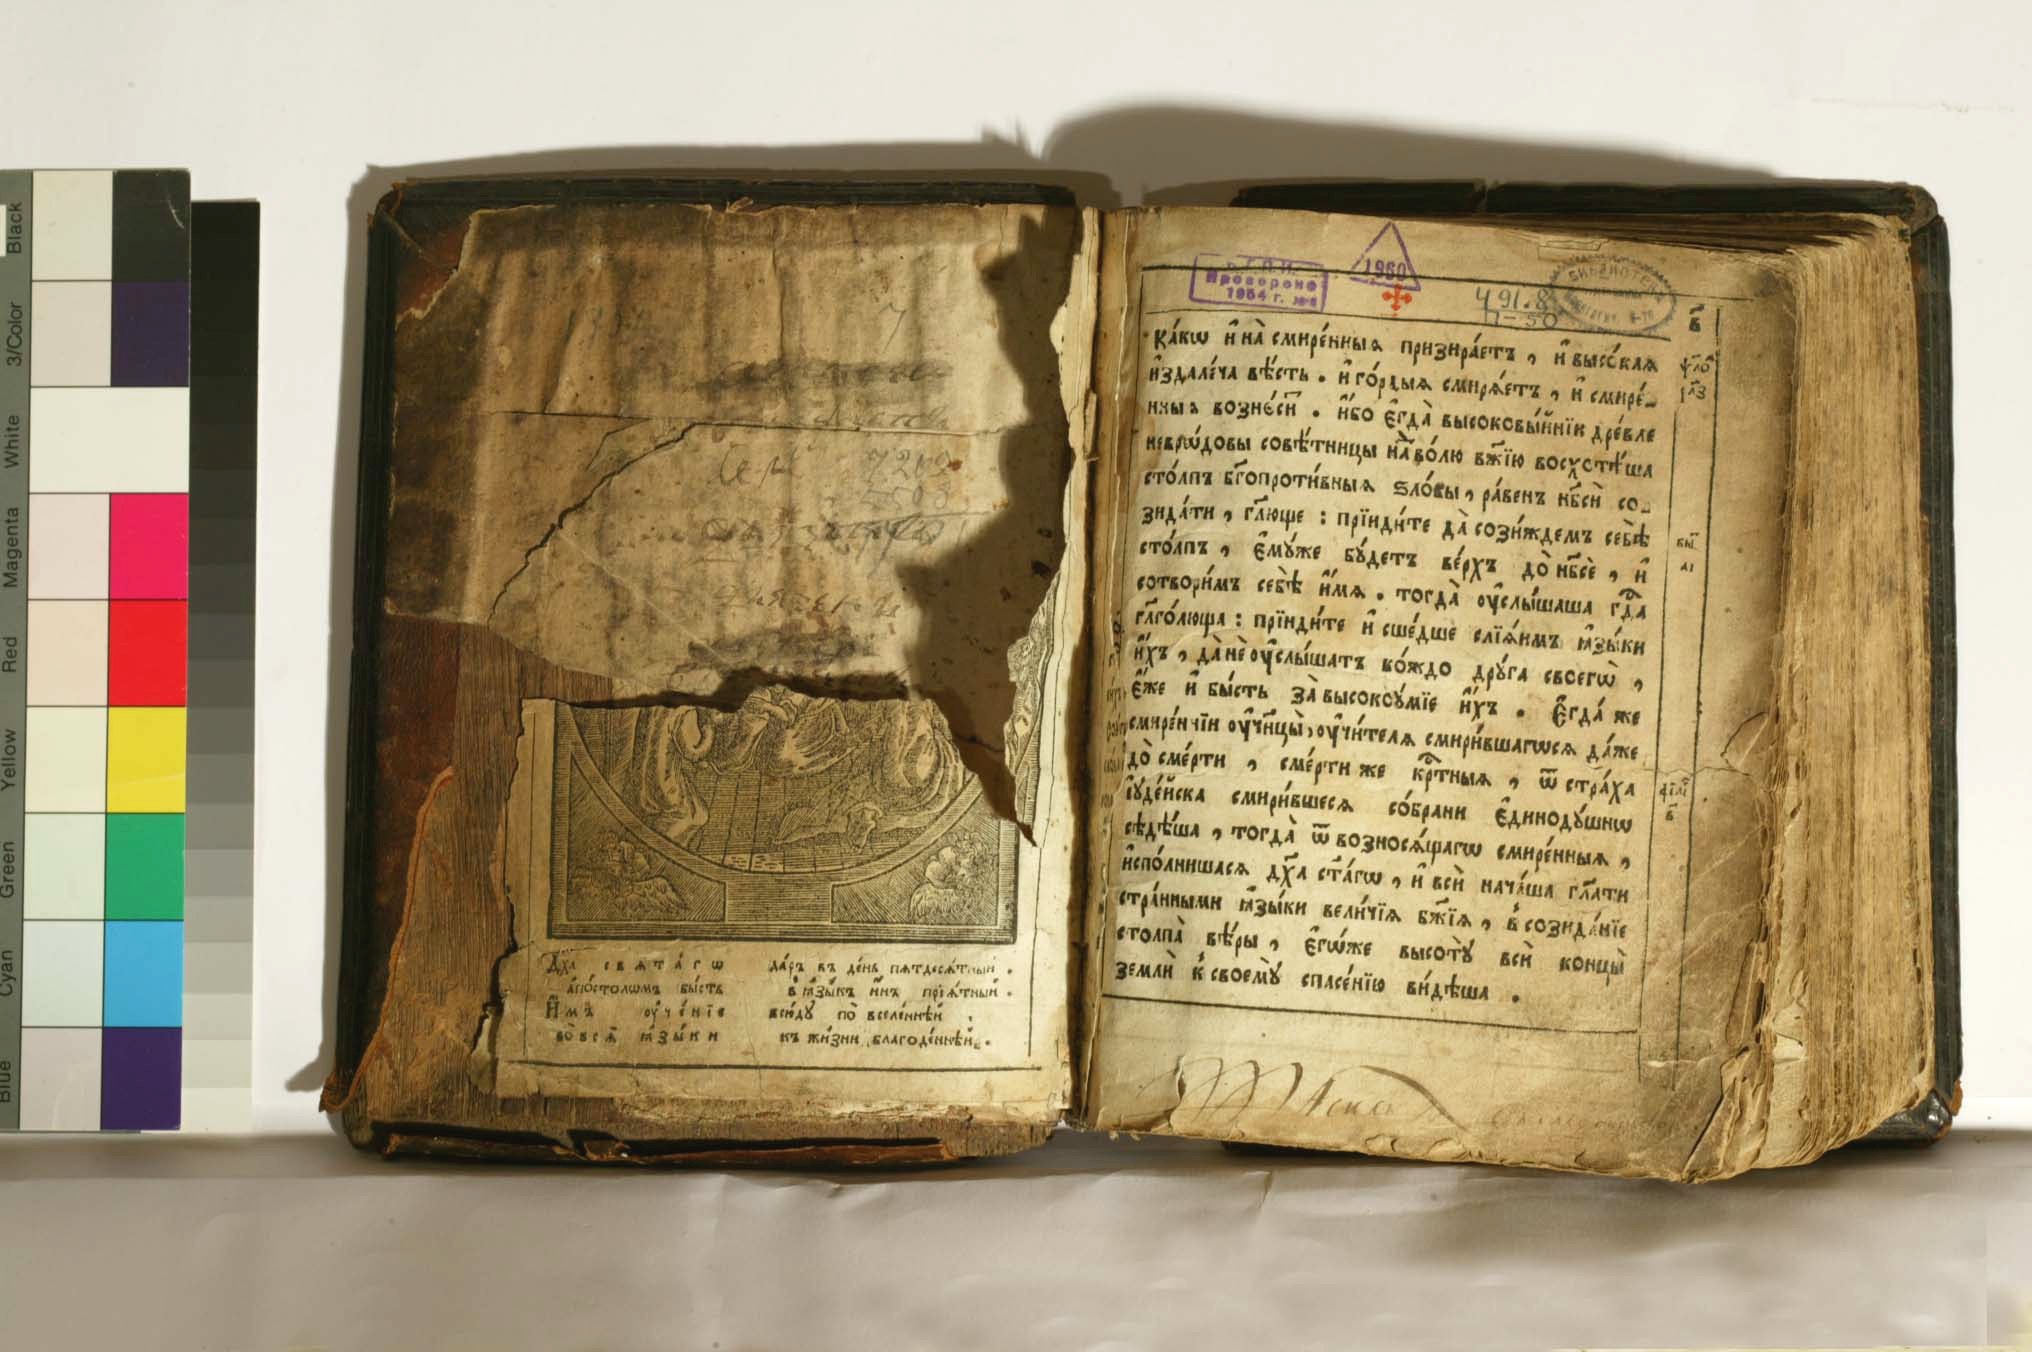 Black
3/Color
White
Magenta
Red
Yellow
Green
Cyan
Blue
7209
5508
Дх҃а свѧта́гѡ да́ръ въ де́нь пѧтдесѧ́тный .
а҆по́столѡмъ бы́сть в̾ ꙗ҆зы́къ и҆́нъ прїѧ́тный .
И҆́мъ ᲂу҆че́нїе всю́дꙋ по̀ вселе́ннѣй ,
во̀ всѧ̀ ꙗ҆зы́ки къ жи́зни благоде́ннѣй .
Г.П.И.
Проверено
1954 г.
1960
491.8
П-50
БИБЛИОТЕКА
в҃
Ка́кѡ и҆ на̀ смире́нныѧ призира́етъ , и҆ высо́каѧ
и҆здале́ча вѣ́сть . и҆ го́рдыѧ смирѧ́етъ , и҆ смире́-
нныѧ возне́сй . и҆́бо є҆гда̀ высоковы́йнїи дре́вле
неврѡ́довы совѣ́тницы на̀ во́лю бж҃їю восхотѣ́ша
сто́лпъ бг҃опроти́вныѧ ѕло́бы , ра́венъ нб҃сѝ со-
зида́ти , гл҃юще : прїиди́те да̀ сози́ждемъ себѣ̀
сто́лпъ , є҆мꙋ́же бꙋ́детъ ве́рхъ до̀ нб҃сѐ , и҆
сотвори́мъ себѣ̀ и҆́мѧ . тогда̀ ᲂу҆слы́шаша гд҃а
гл҃го́люща : прїиди́те и҆ сше́дше слїѧ́имъ ꙗ҆зы́ки
и҆́хъ , да̀ нѐ ᲂу҆слы́шатъ ко́ждо дрꙋ́га своегѡ̀ ,
є҆́же и҆ бы́сть за̀ высокоꙋ́мїе и҆́хъ . Є҆гда́ же
смире́ннїи ᲂу҆чн҃цы̀ ᲂу҆чи́телѧ смири́вшагѡсѧ да́же
до̀ сме́рти , сме́рти же кр҃тныѧ , ѿ стра́ха
і҆ꙋде́йска смири́вшесѧ со́брани є҆динодꙋ́шнѡ
сѣдѣ́ша , тогда̀ ѿ возносѧ́щагѡ смире́нныѧ ,
и҆спо́лнишасѧ дх҃а ст҃а́гѡ , и҆ всѝ нача́ша гл҃ати
стра́нными ꙗ҆зы́ки вели́чїѧ бж҃їѧ , в̾ созида́нїе
столпа̀ вѣ́ры , є҆гѡ́же высотꙋ̀ всѝ концы̀
землѝ к̾ своемꙋ̀ спасе́нїю ви́дѣша .
ѱл҃о
рл҃з
бы҃т
а҃і
фїлі
в҃